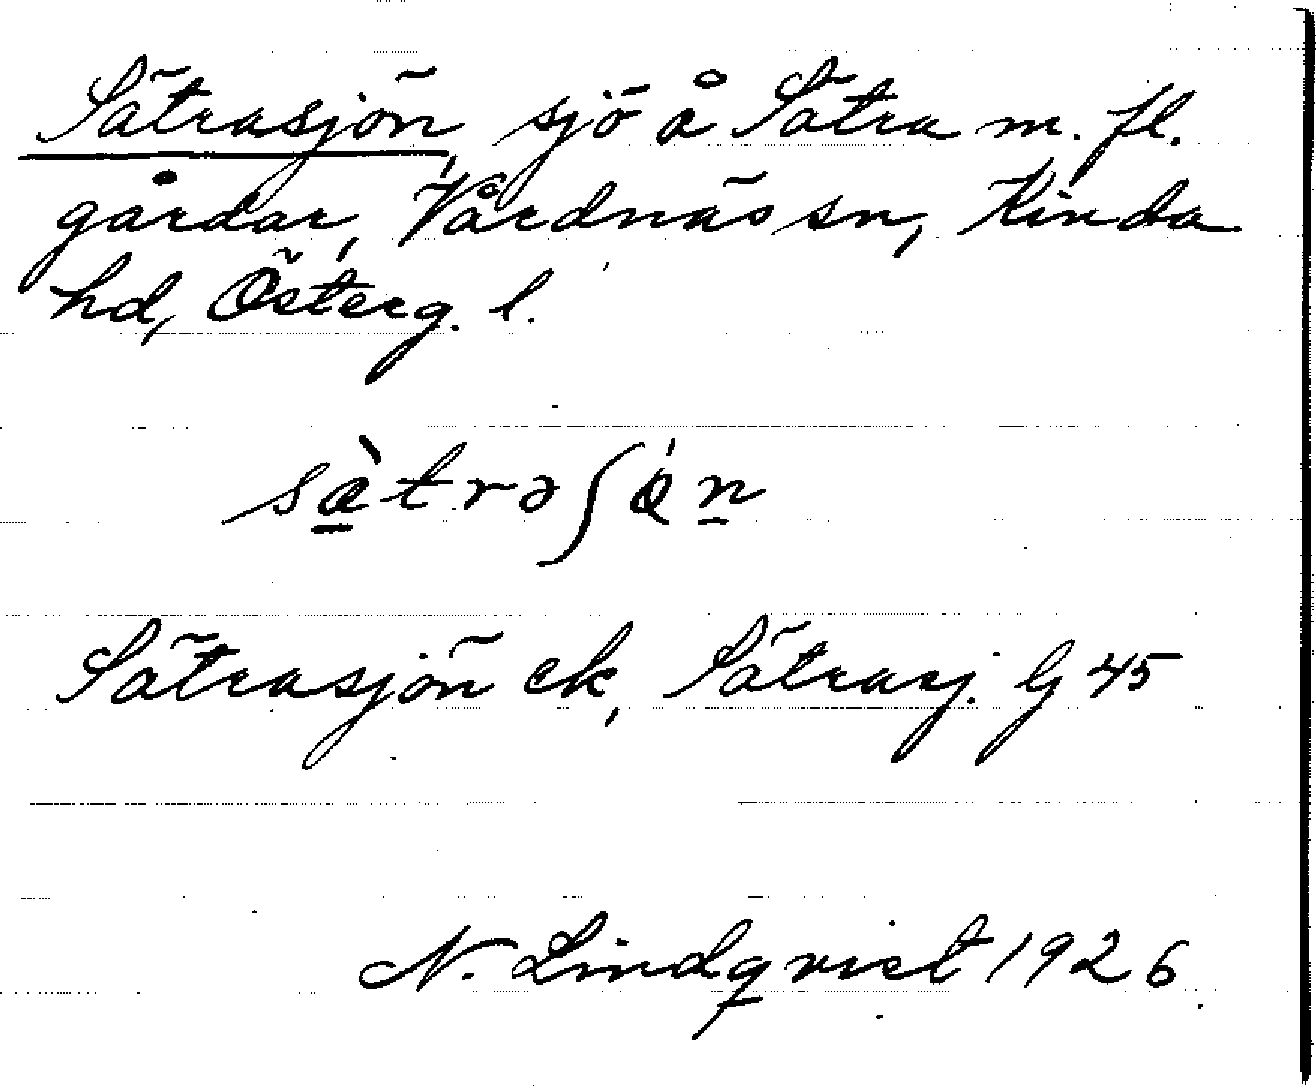 Sätrasjön, sjö å Sätra m. fl.
gårdar, Vårdnäs sn, Kinda
hd, Österg. l.
sà̱trəʃö́n̠
Sätrasjön ek, Sätrasj. G 45
N. Lindqvist 1926